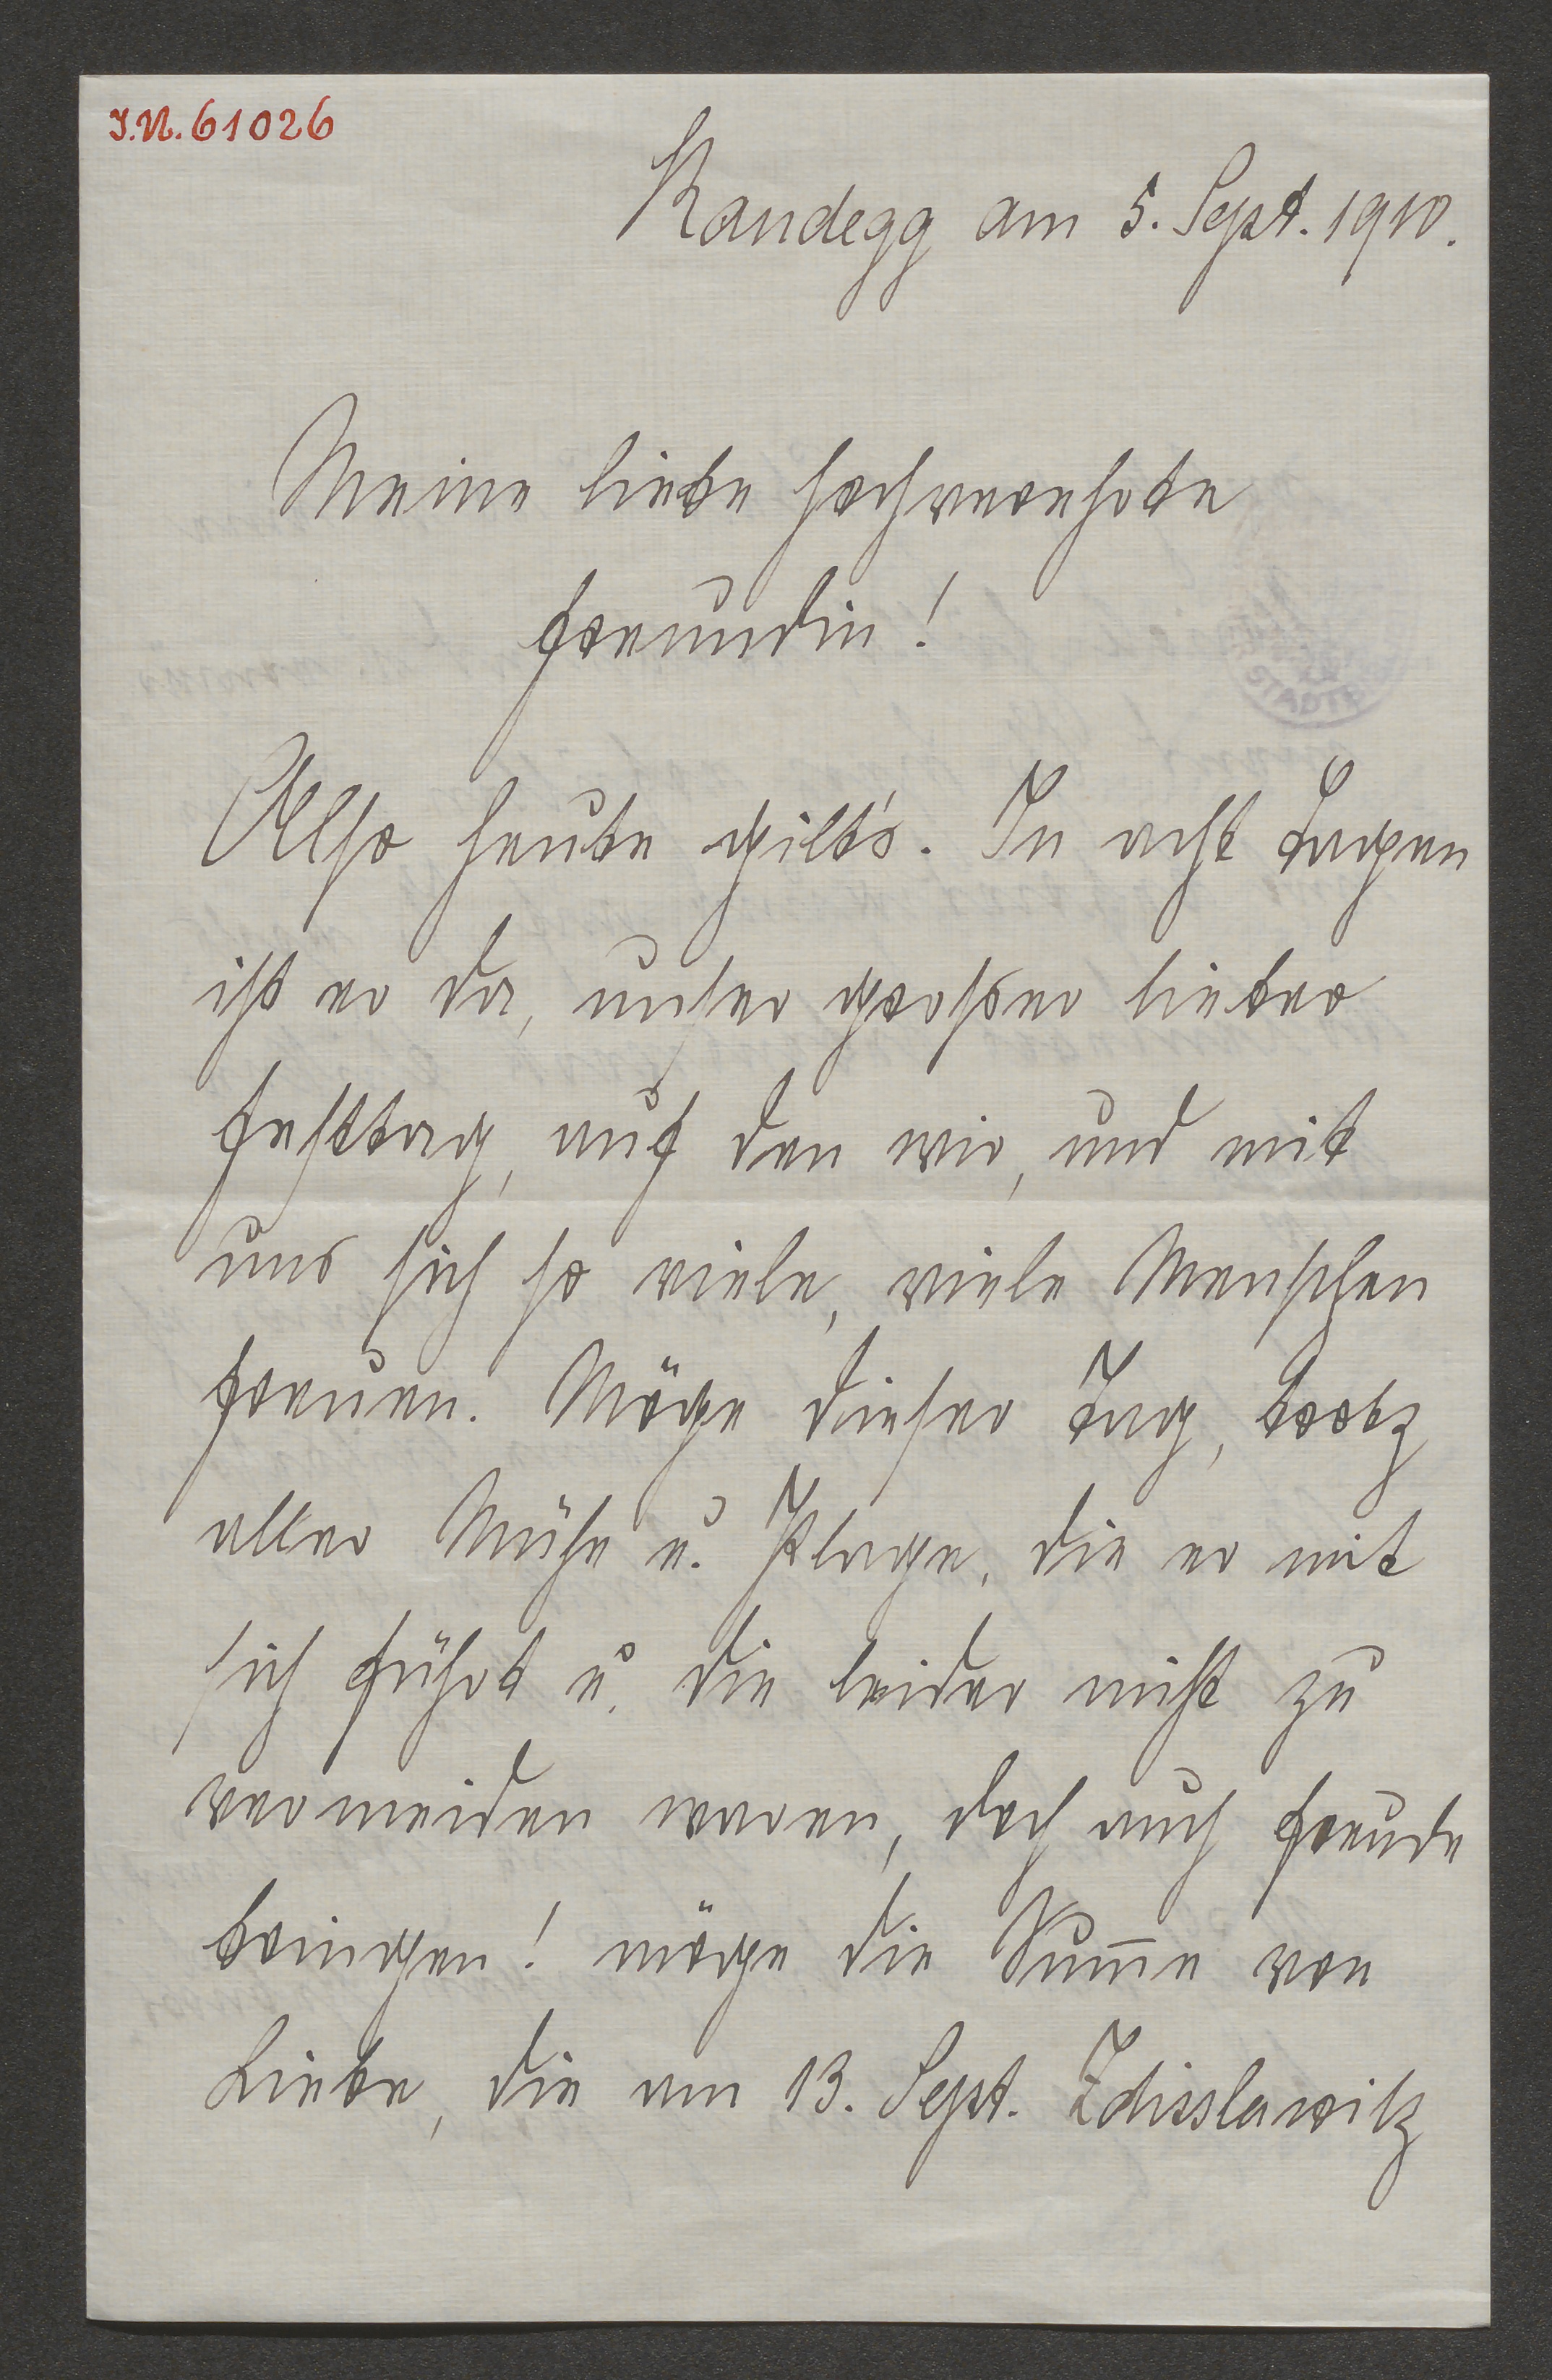 I.N. 61026
Randegg am 5. Sept. 1910.
Meine liebe hochverehrte
Freundin!
Also heute gilt's. In acht Tagen
ist er da, unser großer lieber
Festtag, auf den wir, und mit
uns sich so viele, viele Menschen
freuen. Möge dieser Tag, trotz
aller Mühe u. Plage, die er mit
sich führt u. die leider nicht zu
vermeiden waren, doch auch Freude
bringen! möge die Sum̅e von
Liebe, die am 13. Sept. Zdisslawitz